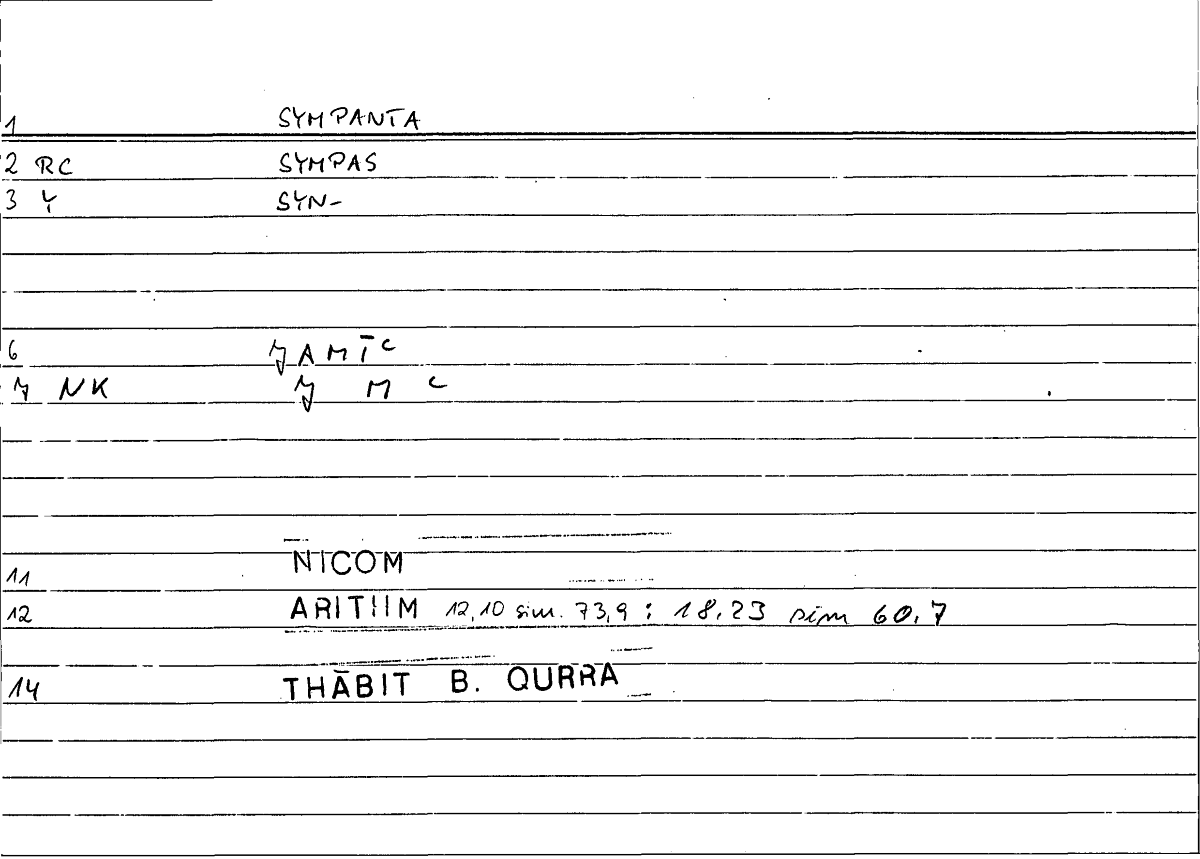 1 SYMPANTA
2 RC SYMPAS
3 Y SYN-
6 ǦAMĪʿ
7 NK Ǧ M ʿ
11 NICOM
12 ARITHM 12,10 sim. 73,9 : 18.23 sim 60.7
14 THĀBIT B. QURRA